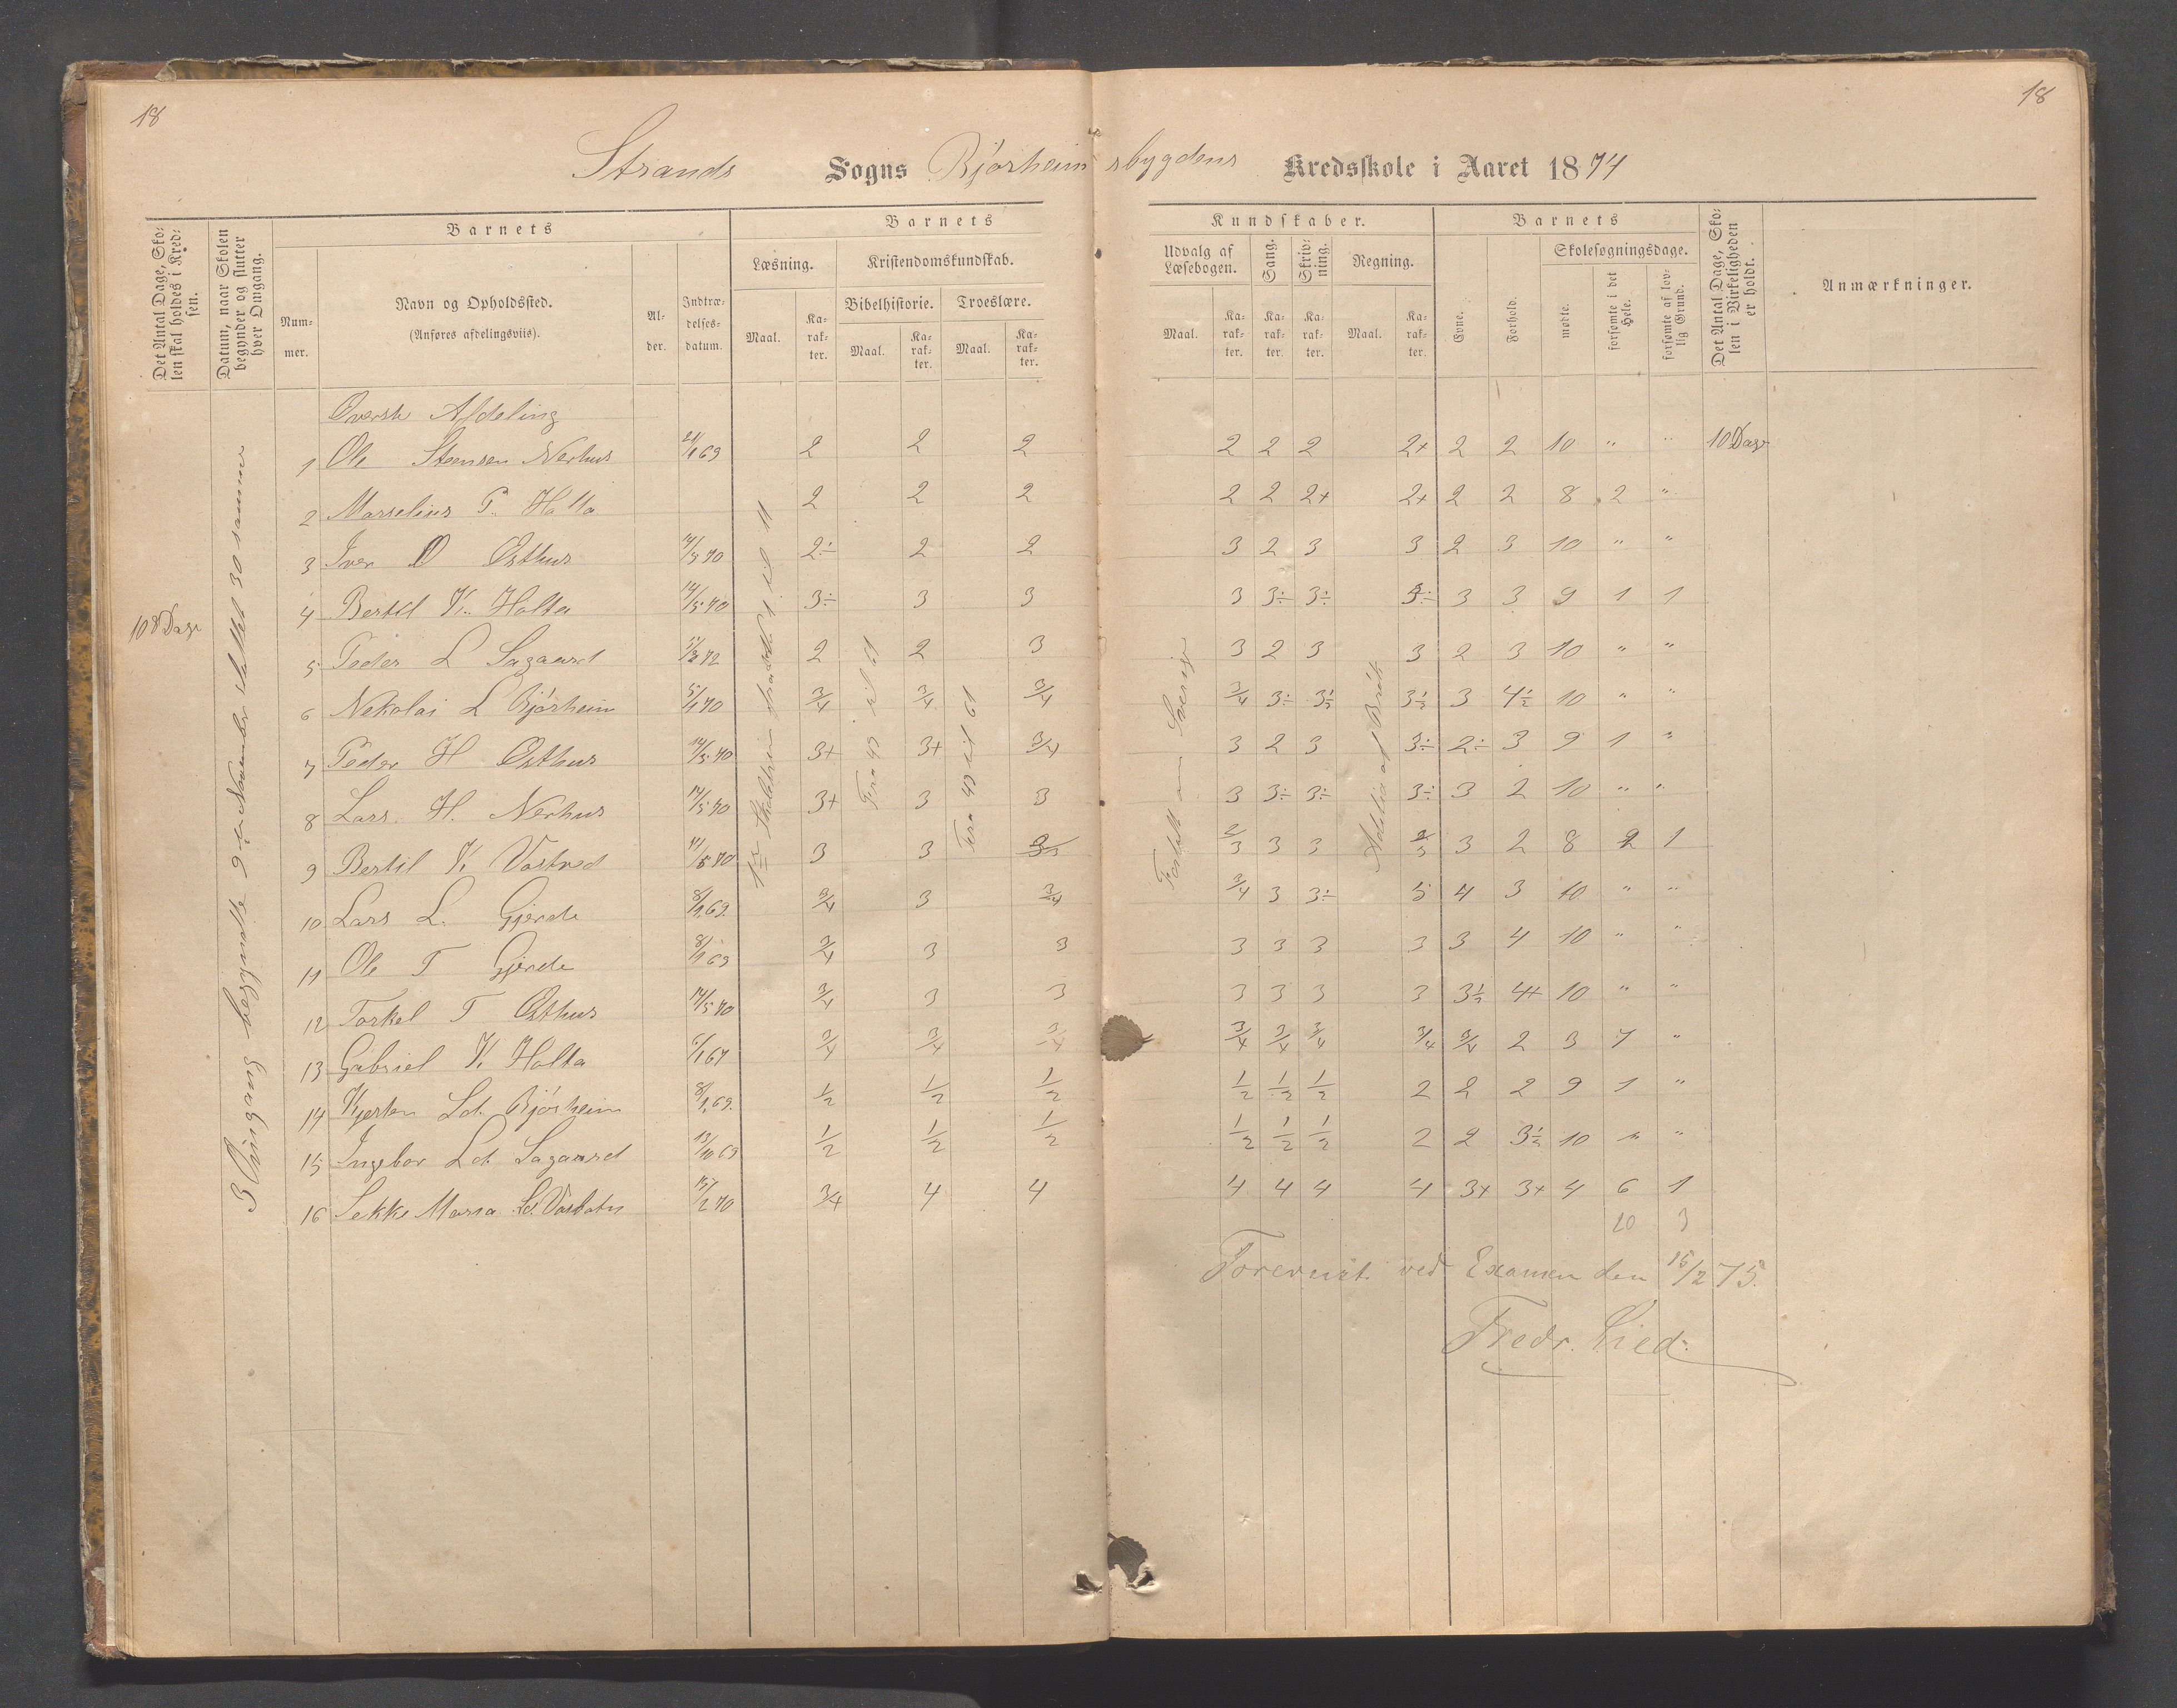 18
18
Strands Sogns Bjørheimsbygdens Kredsskole i Aaret 1874
Det Antal Dage, Skolen skal holdes i Kredsen.
Datum, naar Skolen begynder og slutter hver Omgang.
Barnets
Nummer.
Navn og Opholdssted.
(Anføres afdelingsviis).
Alder.
Indtrædelsesdatum.
Barnets
Læsning.
Kristendomskundskab.
Bibelhistorie.
Troeslære.
Maal.
Karakter.
Maal.
Karakter.
Maal.
Karakter.
Kundskaber.
Udvalg af Læsebogen.
Sang.
Skrivning.
Regning.
Maal.
Karakter.
Karakter.
Karakter.
Maal.
Karakter.
Barnets
Evne.
Forhold.
Skolesøgningsdage.
mødte.
forsømte i det Hele.
forsømte af lovlig Grund.
Det Antal Dage, Skolen i Virkeligheden er holdt.
Anmærkninger.
108 Dage
3 Omgang begyndte 9de November sluttet 30 samme
Fra 49 til 61
Fra 49 til 61
Øverste Afdeling
1 Ole Stensen Nerhus 21/1 69 2 2 2 2 2 2 2+ 2 2 10 " " 10 Dage
2 Marselius P. Holta 2 2 2 2 2 2+ 2+ 2 2 8 2 "
3 Iver O Østhus 14/5 70 2÷ 2 2 3 2 3 3 2 3 10 " "
4 Bertil K. Holta 14/5 70 3÷ 3 3 3 3÷ 3÷ 3÷ 3 3 9 1 1
5 Peder L Sagaard 2 2 3 3 2 3 3 2 3 10 " "
6 Nekolai L Bjørheim 5/1 70 3/4 3/4 3/4 3/4 3÷ 3½ 3½ 3 4½ 10 " "
7 Peder H Østhus 14/5 70 3+ 3+ 3/4 3 2 3 3÷ 2÷ 3 9 1 "
8 Lars. H. Nerhus 14/5 70 3+ 3 3 3 3÷ 3÷ 3÷ 3 2 10 " "
9 Bertil K Vostved 3 3 2/3 3 3 2/3 3 2 8 2 1
10 Lars L. Gjerde 8/1 69. 3/4 3 3/4 3/4 3 3÷ 3 4 3 10 " "
11 Ole T Gjerde 8/1 69 3/4 3 3 3 3 3 3 3 4 10 " "
12 Torkel T Østhus 14/5 70 3/4 3 3 3 3 3 3 3½ 4+ 10 " "
13 Gabriel K. Holta 6/1 67 3/4 3/4 3/4 3/4 3/4 3/4 3/4 3/4 2 3 7 "
14 Kjersten Ld. Bjørheim 8/1 69. 1/2 1/2 1/2 1/2 1/2 1/2 2 2 2 9 1 "
15 Ingebor Ld. Sagaard 13/10 69 1/2 1/2 1/2 1/2 1/2 1/2 2 2 3½ 10 " "
16 Sekke Maria Ld. 15/2 70 3/4 4 4 4 4 4 4 3+ 3+ 4 6 1
20 3
Forevist ved Examen den 16/2 75.
Fredr. Lied.